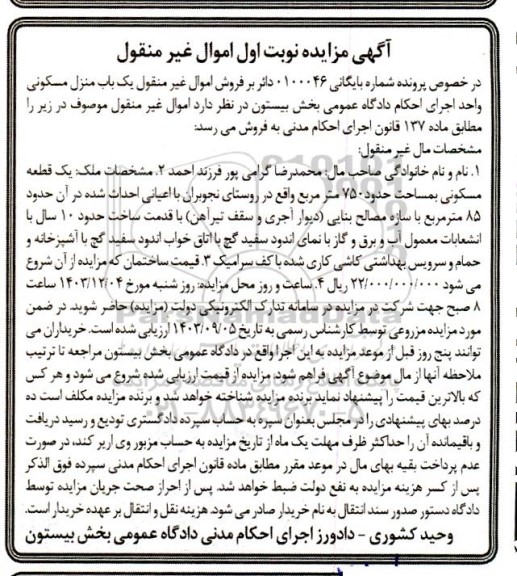 آگهی مزایده نوبت اول اموال غیر منقول
در خصوص پرونده شماره بایگانی ۰۱۰۰۰۴۶ دائر بر فروش اموال غیر منقول یک باب منزل مسکونی
واحد اجرای احکام دادگاه عمومی بخش بیستون در نظر دارد اموال غیر منقول موصوف در زیر را
مطابق ماده ۱۳۷ قانون اجرای احکام مدنی به فروش می رسد:
مشخصات مال غیر منقول:
۱. نام و نام خانوادگی صاحب مال: محمدرضا گرامی پور فرزند احمد ۲. مشخصات ملک: یک قطعه
مسکونی بمساحت حدود ۷۵۰ متر مربع واقع در روستای نجوبران با اعیانی احداث شده در آن حدود
۸۵ مترمربع با سازه مصالح بنایی (دیوار آجری و سقف تیرآهن) با قدمت ساخت حدود ۱۰ سال با
انشعابات معمول آب و برق و گاز با نمای اندود سفید گچ با اتاق خواب اندود سفید گچ با آشپزخانه و
حمام و سرویس بهداشتی کاشی کاری شده با کف سرامیک ۳. قیمت ساختمان که مزایده از آن شروع
می شود ۲۲/۰۰۰/۰۰۰/۰۰۰ ریال ۴. ساعت و روز محل مزایده: روز شنبه مورخ ۱۴۰۳/۱۲/۰۴ ساعت
۸ صبح جهت شرکت در مزایده در سامانه تدارک الکترونیکی دولت (مزایده) حاضر شوید. در ضمن
مورد مزایده مزروعی توسط کارشناس رسمی به تاریخ ۱۴۰۳/۰۹/۰۵ ارزیابی شده است. خریداران می
توانند پنج روز قبل از موعد مزایده به این اجرا واقع در دادگاه عمومی بخش بیستون مراجعه تا ترتیب
ملاحظه آنها از مال موضوع آگهی فراهم شود. مزایده از قیمت ارزیابی شده شروع می شود و هر کس
که بالاترین قیمت را پیشنهاد نماید برنده مزایده شناخته خواهد شد و برنده مزایده مکلف است ده
درصد بهای پیشنهادی را در مجلس بعنوان سپرده به حساب سپرده دادگستری تودیع و رسید دریافت
و باقیمانده آن را حداکثر ظرف مهلت یک ماه از تاریخ مزایده به حساب مزبور وی اریر کند، در صورت
عدم پرداخت بقیه بهای مال در موعد مقرر مطابق ماده قانون اجرای احکام مدنی سپرده فوق الذکر
پس از کسر هزینه مزایده به نفع دولت ضبط خواهد شد. پس از احراز صحت جریان مزایده توسط
دادگاه دستور صدور سند انتقال به نام خریدار صادر می شود. هزینه نقل و انتقال بر عهده خریدار است.
وحید کشوری - دادورز اجرای احکام مدنی دادگاه عمومی بخش بیستون